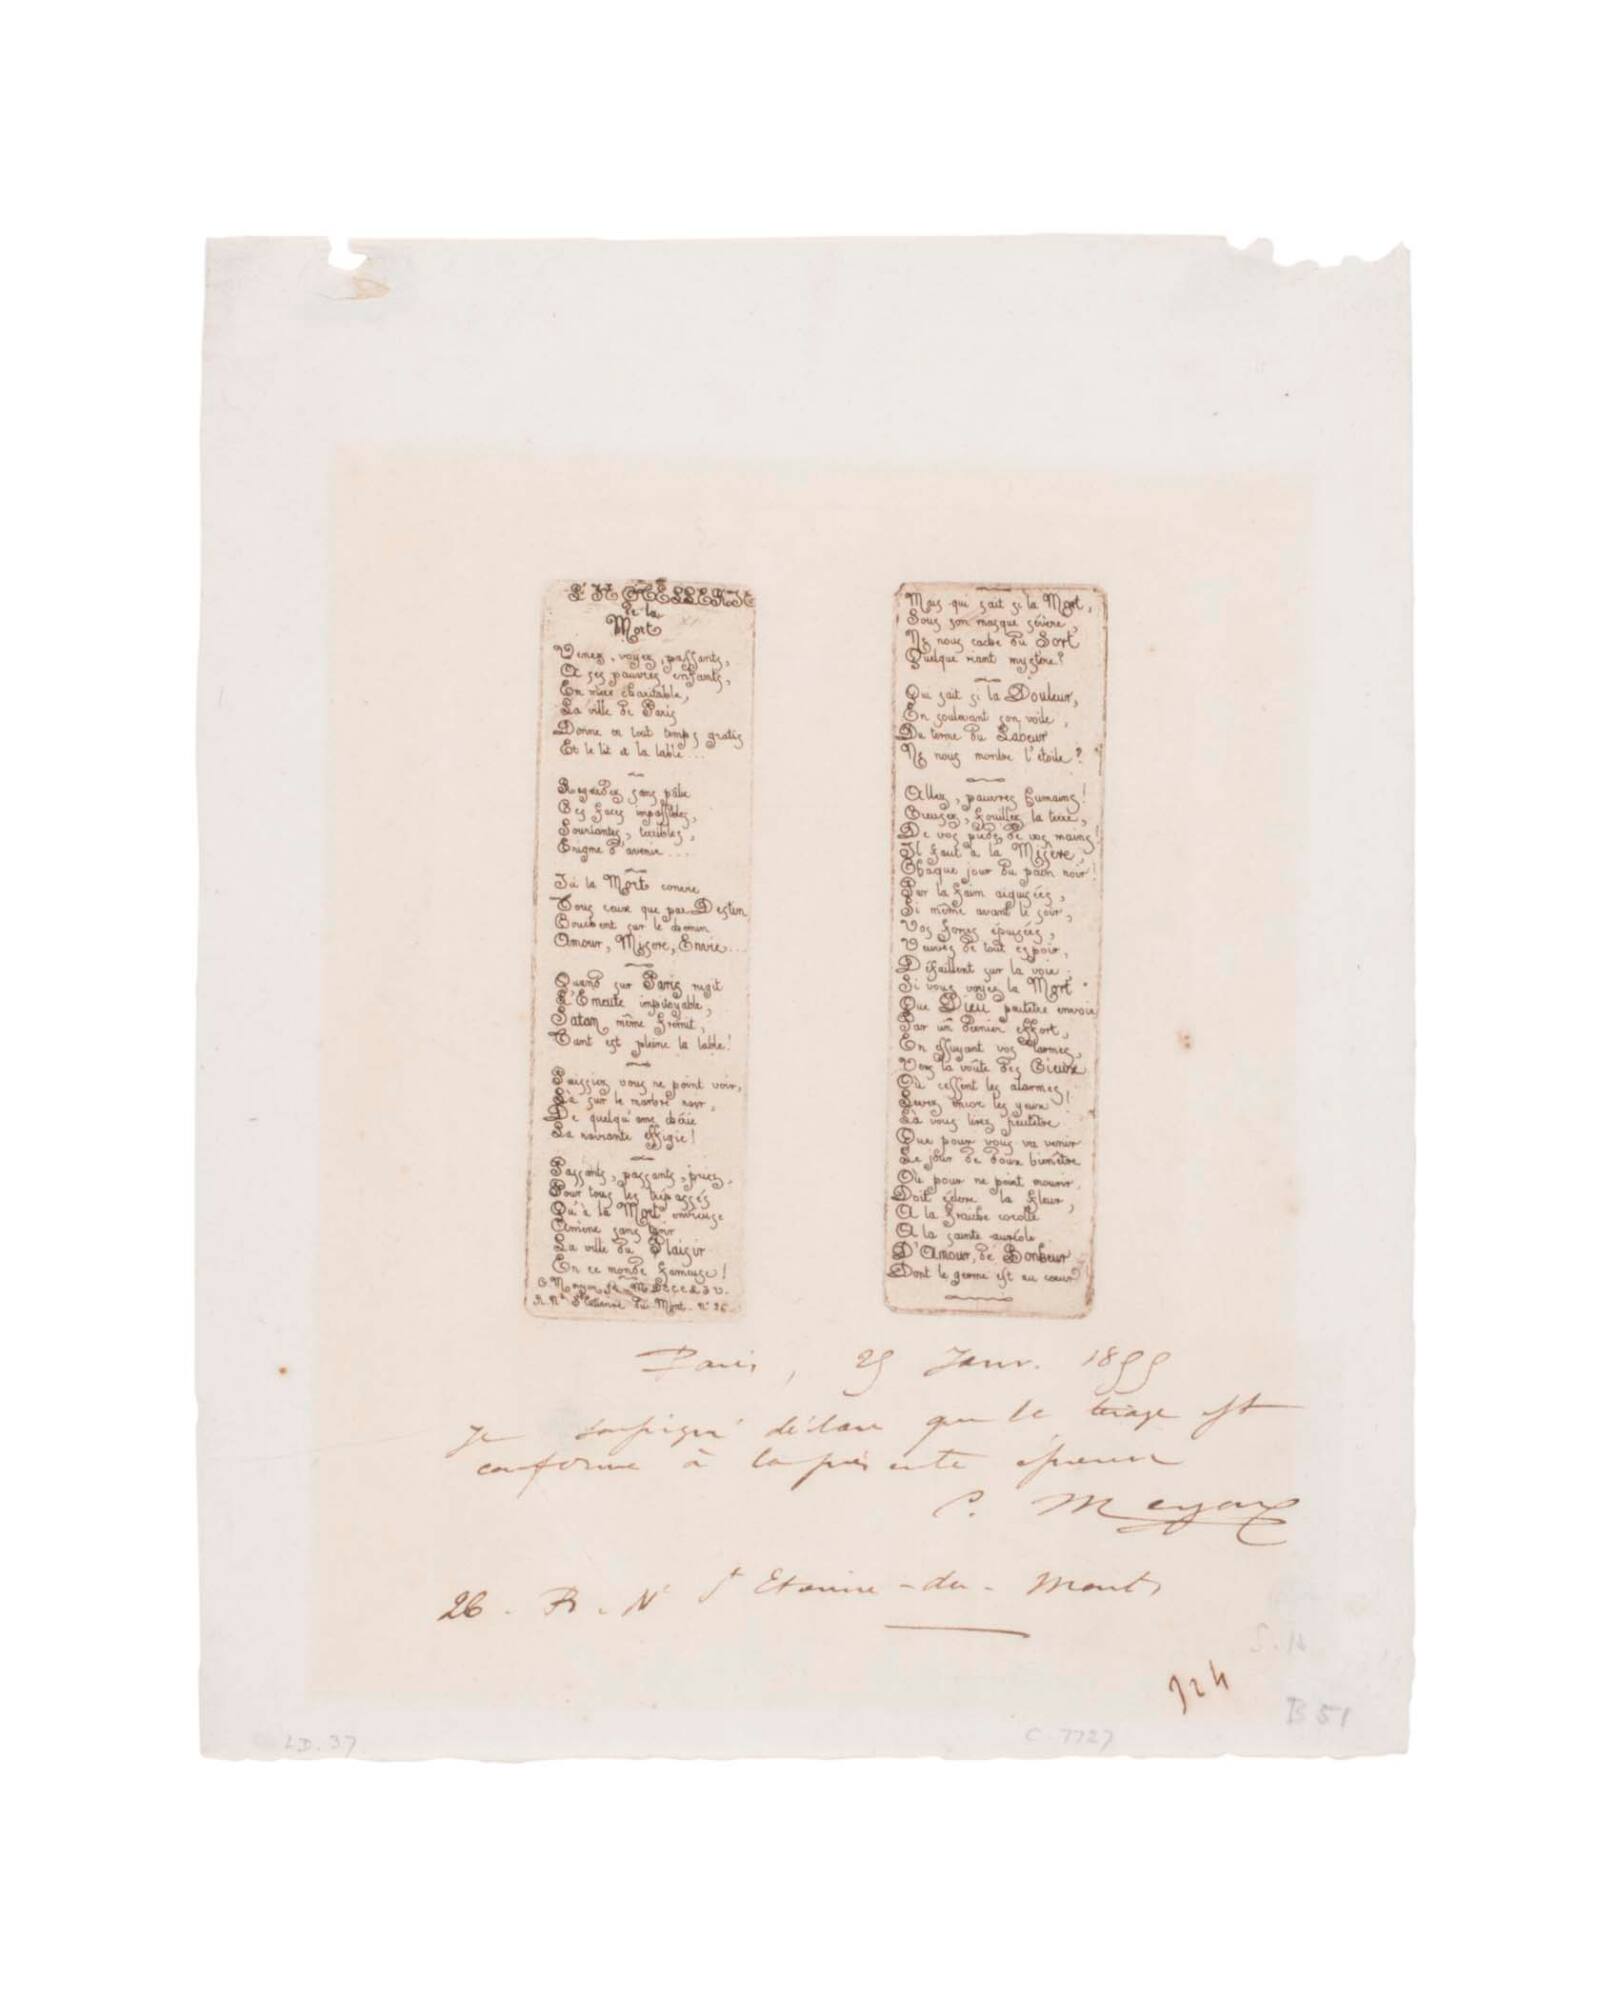 L'HÔTELLERIE
de la
Mort
Venez, voyez, passants,
A ses pauvres enfants,
En mère charitable,
La ville de Paris
Donne en tout temps gratis
Et le lit et la table...
Regardez sans pâlir
Ces faces impassibles,
Souriantes, terribles,
Enigme d'avenir....
Ici la Mort convie
Tous ceux que par Destin
Couchent sur le chemin
Amour, Misère, Envie...
Quand sur Paris rugit
L'Emeute impitoyable,
Satan même frémit,
Tant est pleine la table!
Puissiez vous ne point voir,
Là sur le marbre noir,
De quelqu'ame chérie
La navrante effigie!
Passants, passants, priez,
Pour tous les trépassés
Qu'à la Mort envieuse
Amène sans
La ville du Plaisir
En ce monde fameuse!
C. Meryon ft. MDCCCLIV.
R. Ne St Etienne du Mont. No 26.
Mais qui sait si la Mort,
Sous son masque sévère,
Ne nous cache du Sort
Quelque riant mystère?
Qui sait si la Douleur,
En soulevant son voile,
Du terme du Labeur
Ne nous montre l'étoile?
Allez, pauvres humains!
Creusez, fouillez la terre,
De vos pieds, de vos mains!
Il faut à la Misère,
Chaque jour du pain noir!
Par la faim aiguisées,
Si même avant le soir,
Vos forces épuisées,
Veuves de tout espoir,
Défaillent sur la voie;
Si vous voyez la Mort
Que Dieu peutêtre envoie
Par un dernier effort,
En essuyant vos larmes,
Vers la voûte des Cieux
Où cessent les alarmes!
Levez encor les yeux!
Là vous lirez peutêtre
Que pour vous va venir
Le jour de doux bienêtre
Où pour ne point mourir,
Doit éclore la fleur,
A la fraîche corolle
A la sainte auréole
D'Amour, de Bonheur
Dont le germe est au cœur
Paris, 25 Janv. 1855
Je soussigné déclare que le tirage est
conforme à la présente épreuve
C. Meryon
26. R. Ne St Etienne-du-Mont
S. 14
324
B 51
LD. 37
C. 7727